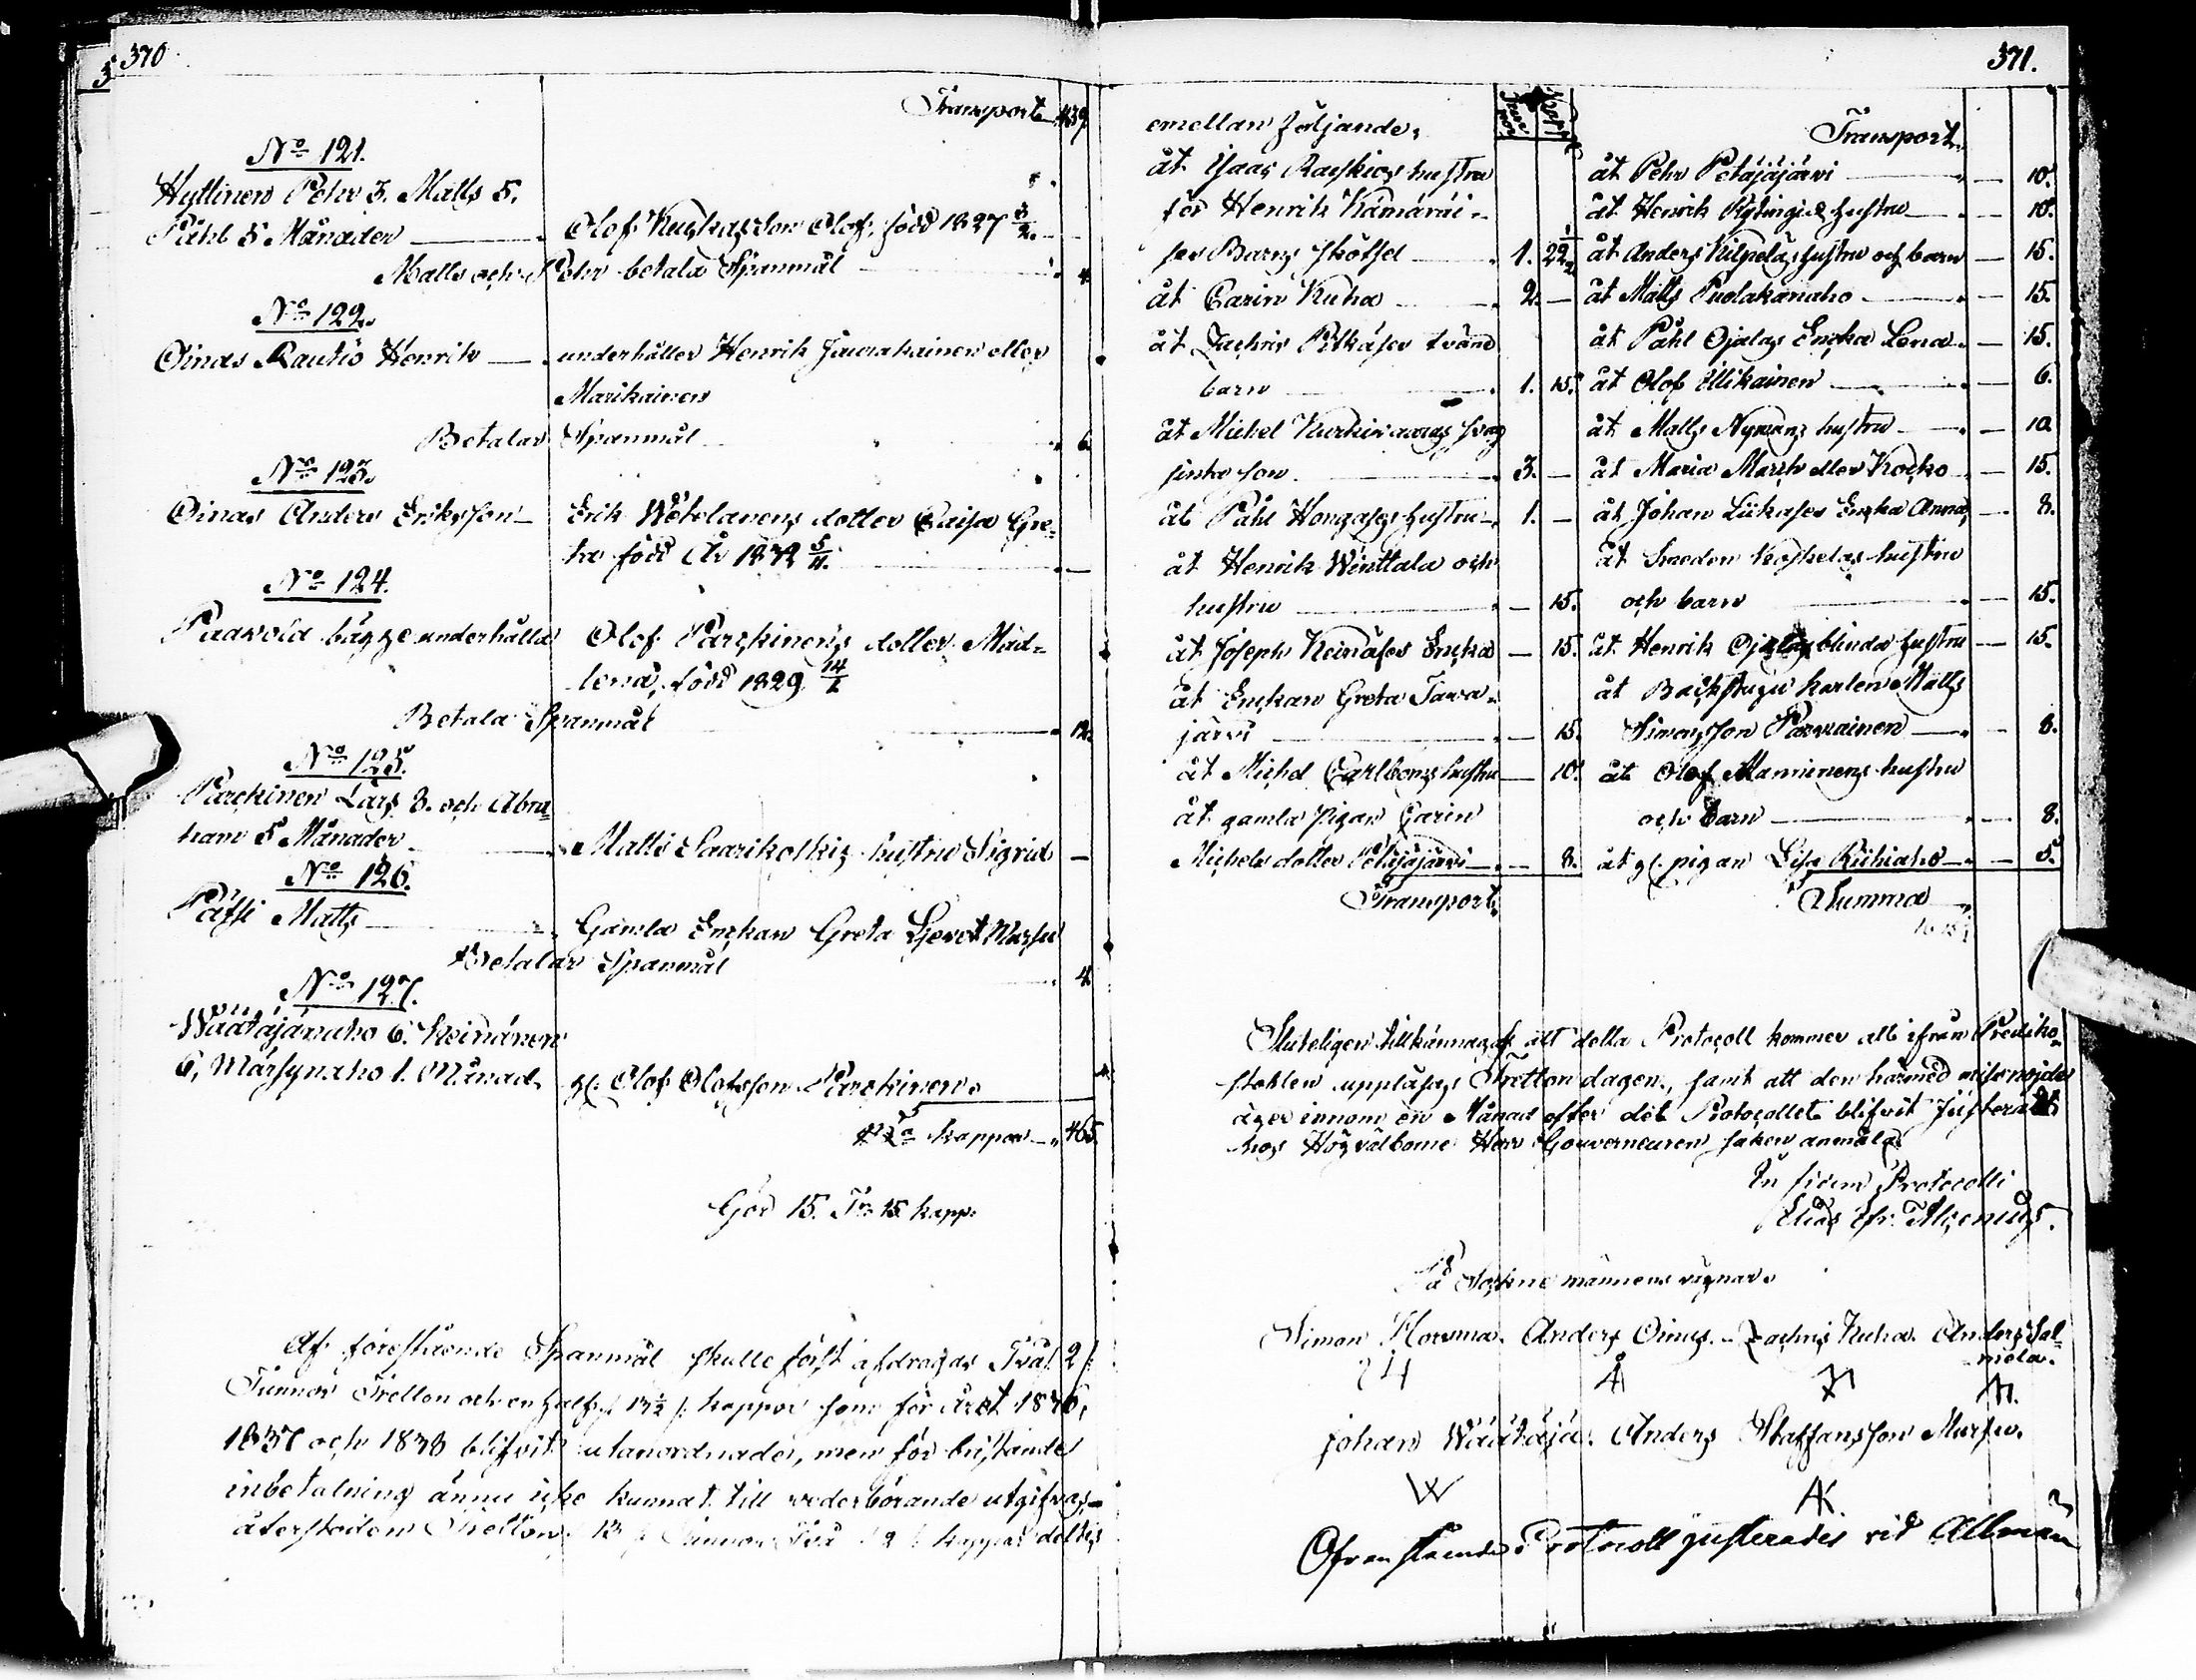 370
Transport 439.
No 121.
Hyttinen Pehr 3. Matts 5.
Påhl 5 Månader Olof Kuskas son Olof, född 1827 3/2.
Matts och Pehr betala Spanmål 4.
No 122.
Oinas Rautio Henrik underhåller Henrik Jaurakainen eller
Marikainen
Betalar Spanmål 6.
No 123.
Oinas Anders Eriksson Erik Wetelanens dotter Caisa Gre-
ta född År 1832 5/11.
No 124.
Paavola bägge underhålla Olof Parckinens dotter Mad-
lena, född 1829 14/1
Betala Spanmål 12.
No 125.
Parckinen Lars 3. och Abra-
ham 5 Månader Matts Saarikoskis hustru Sigrid
No 126.
Pätsi Matts Gamla Enkan Greta Mursu
Betalar Spanmål 4.
No 127.
Wäätäjänaho 6. Keinänen
6, Märsynaho 1. Månad gl. Olof Olofsson Parckinen
Sa kappar 465.
Gör 15. Tr 15 kapp.
Af förestående Spanmål skulle först afdragas Två 2
Tunnor Tretton och en half 13 1/2 kappar som för året 1836,
1837 och 1838 blifvit utanordnade, men för bristande
inbetalning ännu icke kunnat till vederbörande utgifvas
återstoden Tretton 13 Tunnor Två 2 kappar deltes
371.
emellan följande,
åt Isaac Raiskios hustru
för Henrik Kämäräi-
ses Barns skötsel 1. 22 1/2
åt Carin Kuha 2.
åt Zachris Pitkäses tvänne
barn 1. 15.
åt Michel Kurkinaavas svag
sinta son 3.
åt Påhl Hongases hustru 1.
åt Henrik Winttala och
hustru 15.
åt Joseph Keinäses Encka 15.
åt Enckan Greta Tava-
järvi 15.
åt Michel Carlboms hustru 10.
åt gamla pigan Carin
Michelsdotter Petäjäjärvi 8.
Transport
Transport
åt Pehr Petäjäjärvi 10.
åt Henrik hustru 10.
åt Anders Kilpeläs hustru och barn 15.
åt Matts Puolakanaho 15.
åt Påhl Ojalas Encka Lena 15.
åt Olof Illikainen 6.
åt Matts Nymans hustru 10
åt Maria Marth eller Kocko 15.
åt Johan Liikases Encka Anna 8.
åt Soeden Koskelas hustru
och barn 15.
åt Henrik Ojalas blinda hustru 15.
åt Backstugu karlen Matts
Simonsson Parviainen 8.
åt Olof Manninens hustru
och Barn 8.
åt gl. pigan Lisa Riihiaho 5.
Summa
Sluteligen tillkännagafs att detta Protocoll kommer att ifrån Prediko-
stohlen uppläsas Trettondagen, samt att den härmed missnöjde
äger innom en Månad efter det Protocollet blifvit Justerat
hos Högvälborne Herr Gouverneuren saken anmäla
In fidem Protocolli
Elias Efr. Alcenius.
På Sockne männens vägnar
Simon Hoorma. Anders Oinas. Zachris Kuha. Anders Sal-
mela.
Johan Wäätäjä. Anders Staffansson Mursu.
W AK.
Ofvanstående Protocoll justerades vid Allmän